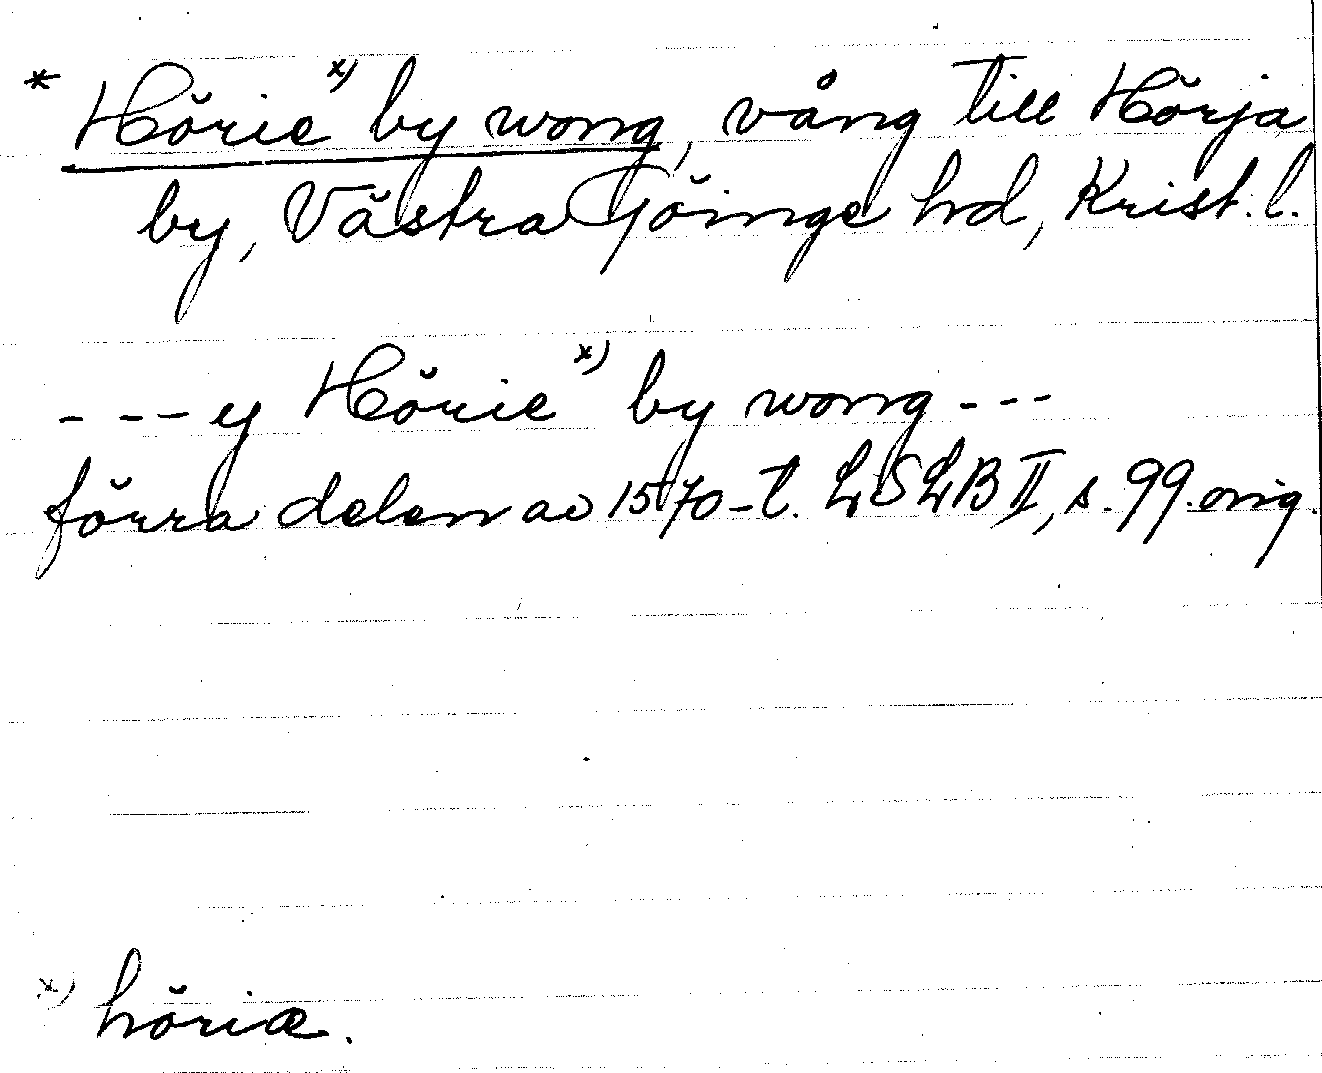 * Hörie x) by wong, vång till Hörja
by, Västra Göinge hd, Krist. l.
- - - y Hörie x) by wong - - -
förra delen av 1570-t. LSLB II, s. 99. orig.
x) höriæ.